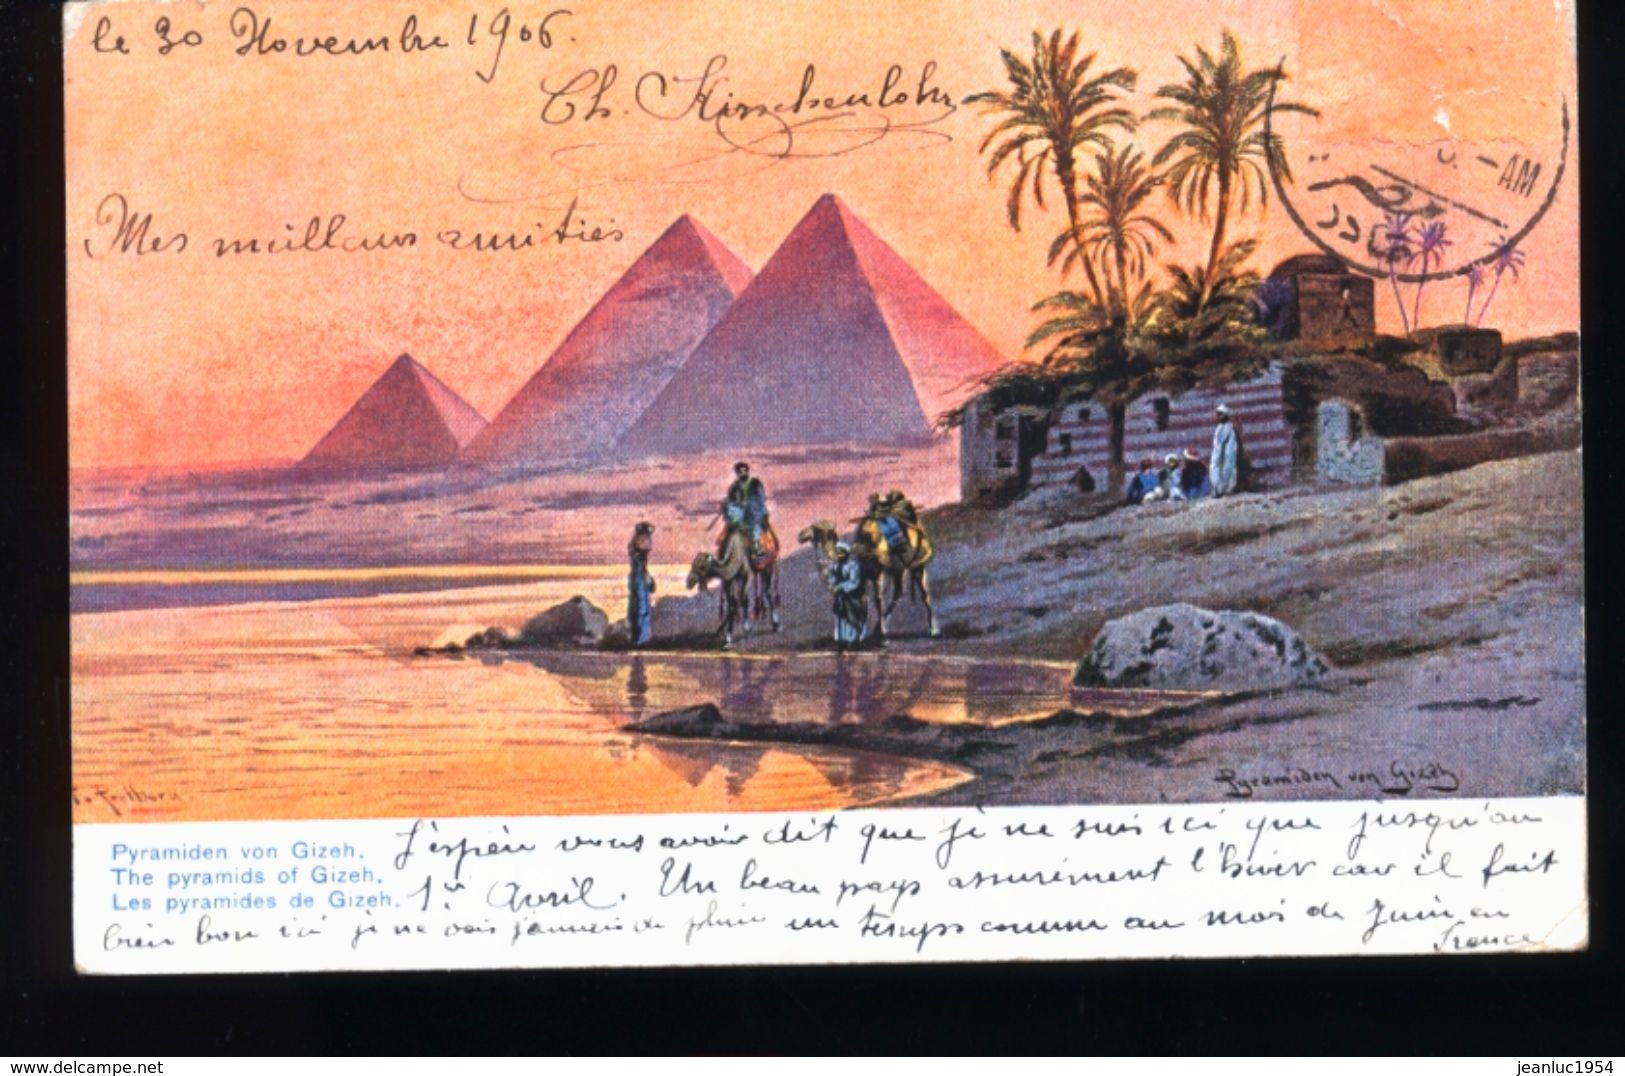 le 30 Novembre 1906.
Ch. Kirschenlohr
Mes meilleurs amitiés
AM
Pyramiden von Gizeh
Pyramiden von Gizeh.
The pyramids of Gizeh.
Les pyramides de Gizeh.
J'espère vous avoir dit que je ne suis ici que jusqu'au
1er Avril. Un beau pays assurément l'hiver car il fait
bien bon ici je ne vois jamais de pluie un temps comme au mois de Juin en
France
jeanluc1954